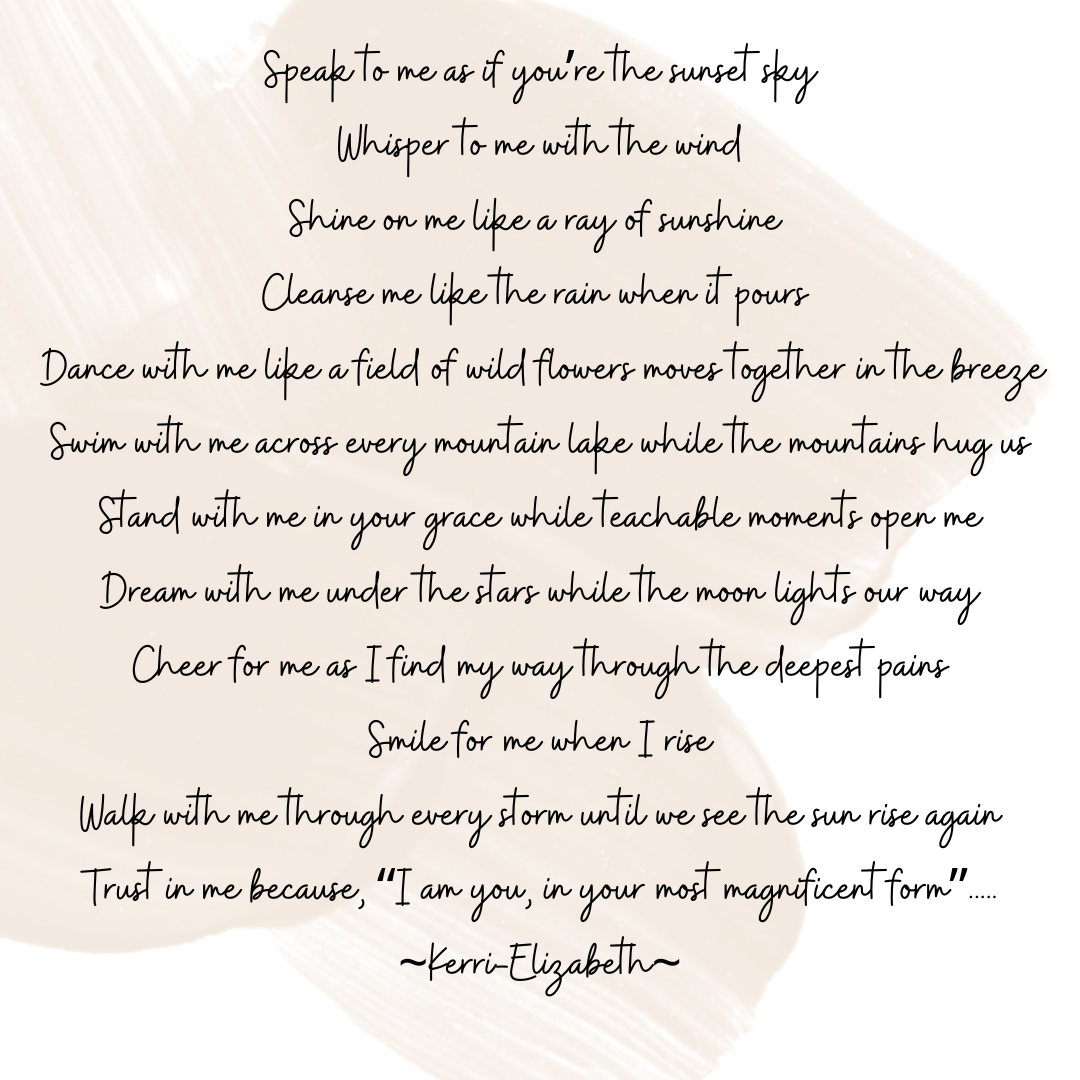 Speak to me as if you're the sunset sky
Whisper to me with the wind
Shine on me like a ray of sunshine
Cleanse me like the rain when it pours
Dance with me like a field of wild flowers moves together in the breeze
Swim with me across every mountain lake while the mountains hug us
Stand with me in your grace while teachable moments open me
Dream with me under the stars while the moon lights our way
Cheer for me as I find my way through the deepest pains
Smile for me when I rise
Walk with me through every storm until we see the sun rise again
Trust in me because, "I am you, in your most magnificent form".....
~Kerri-Elizabeth~